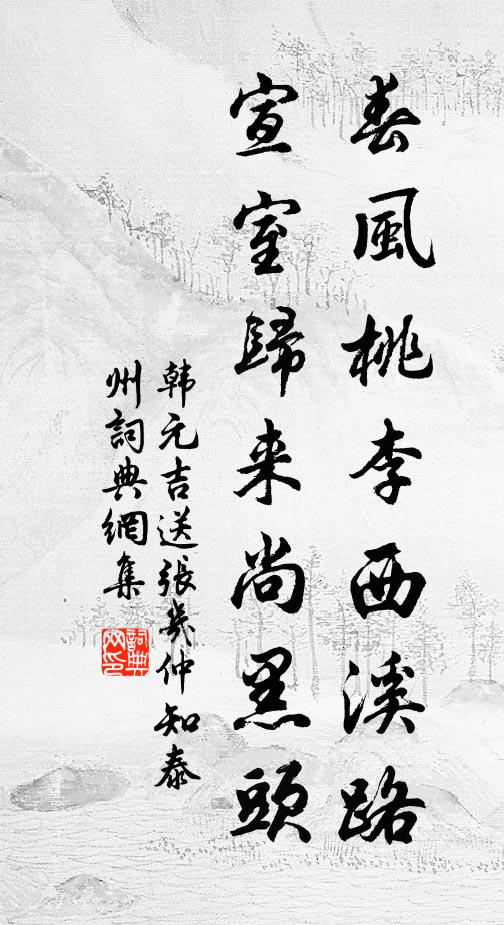 春風桃李西溪路
宣室歸来尚黑頭
韩元吉送張幾仲知泰
州詞典網集
詞典
网印